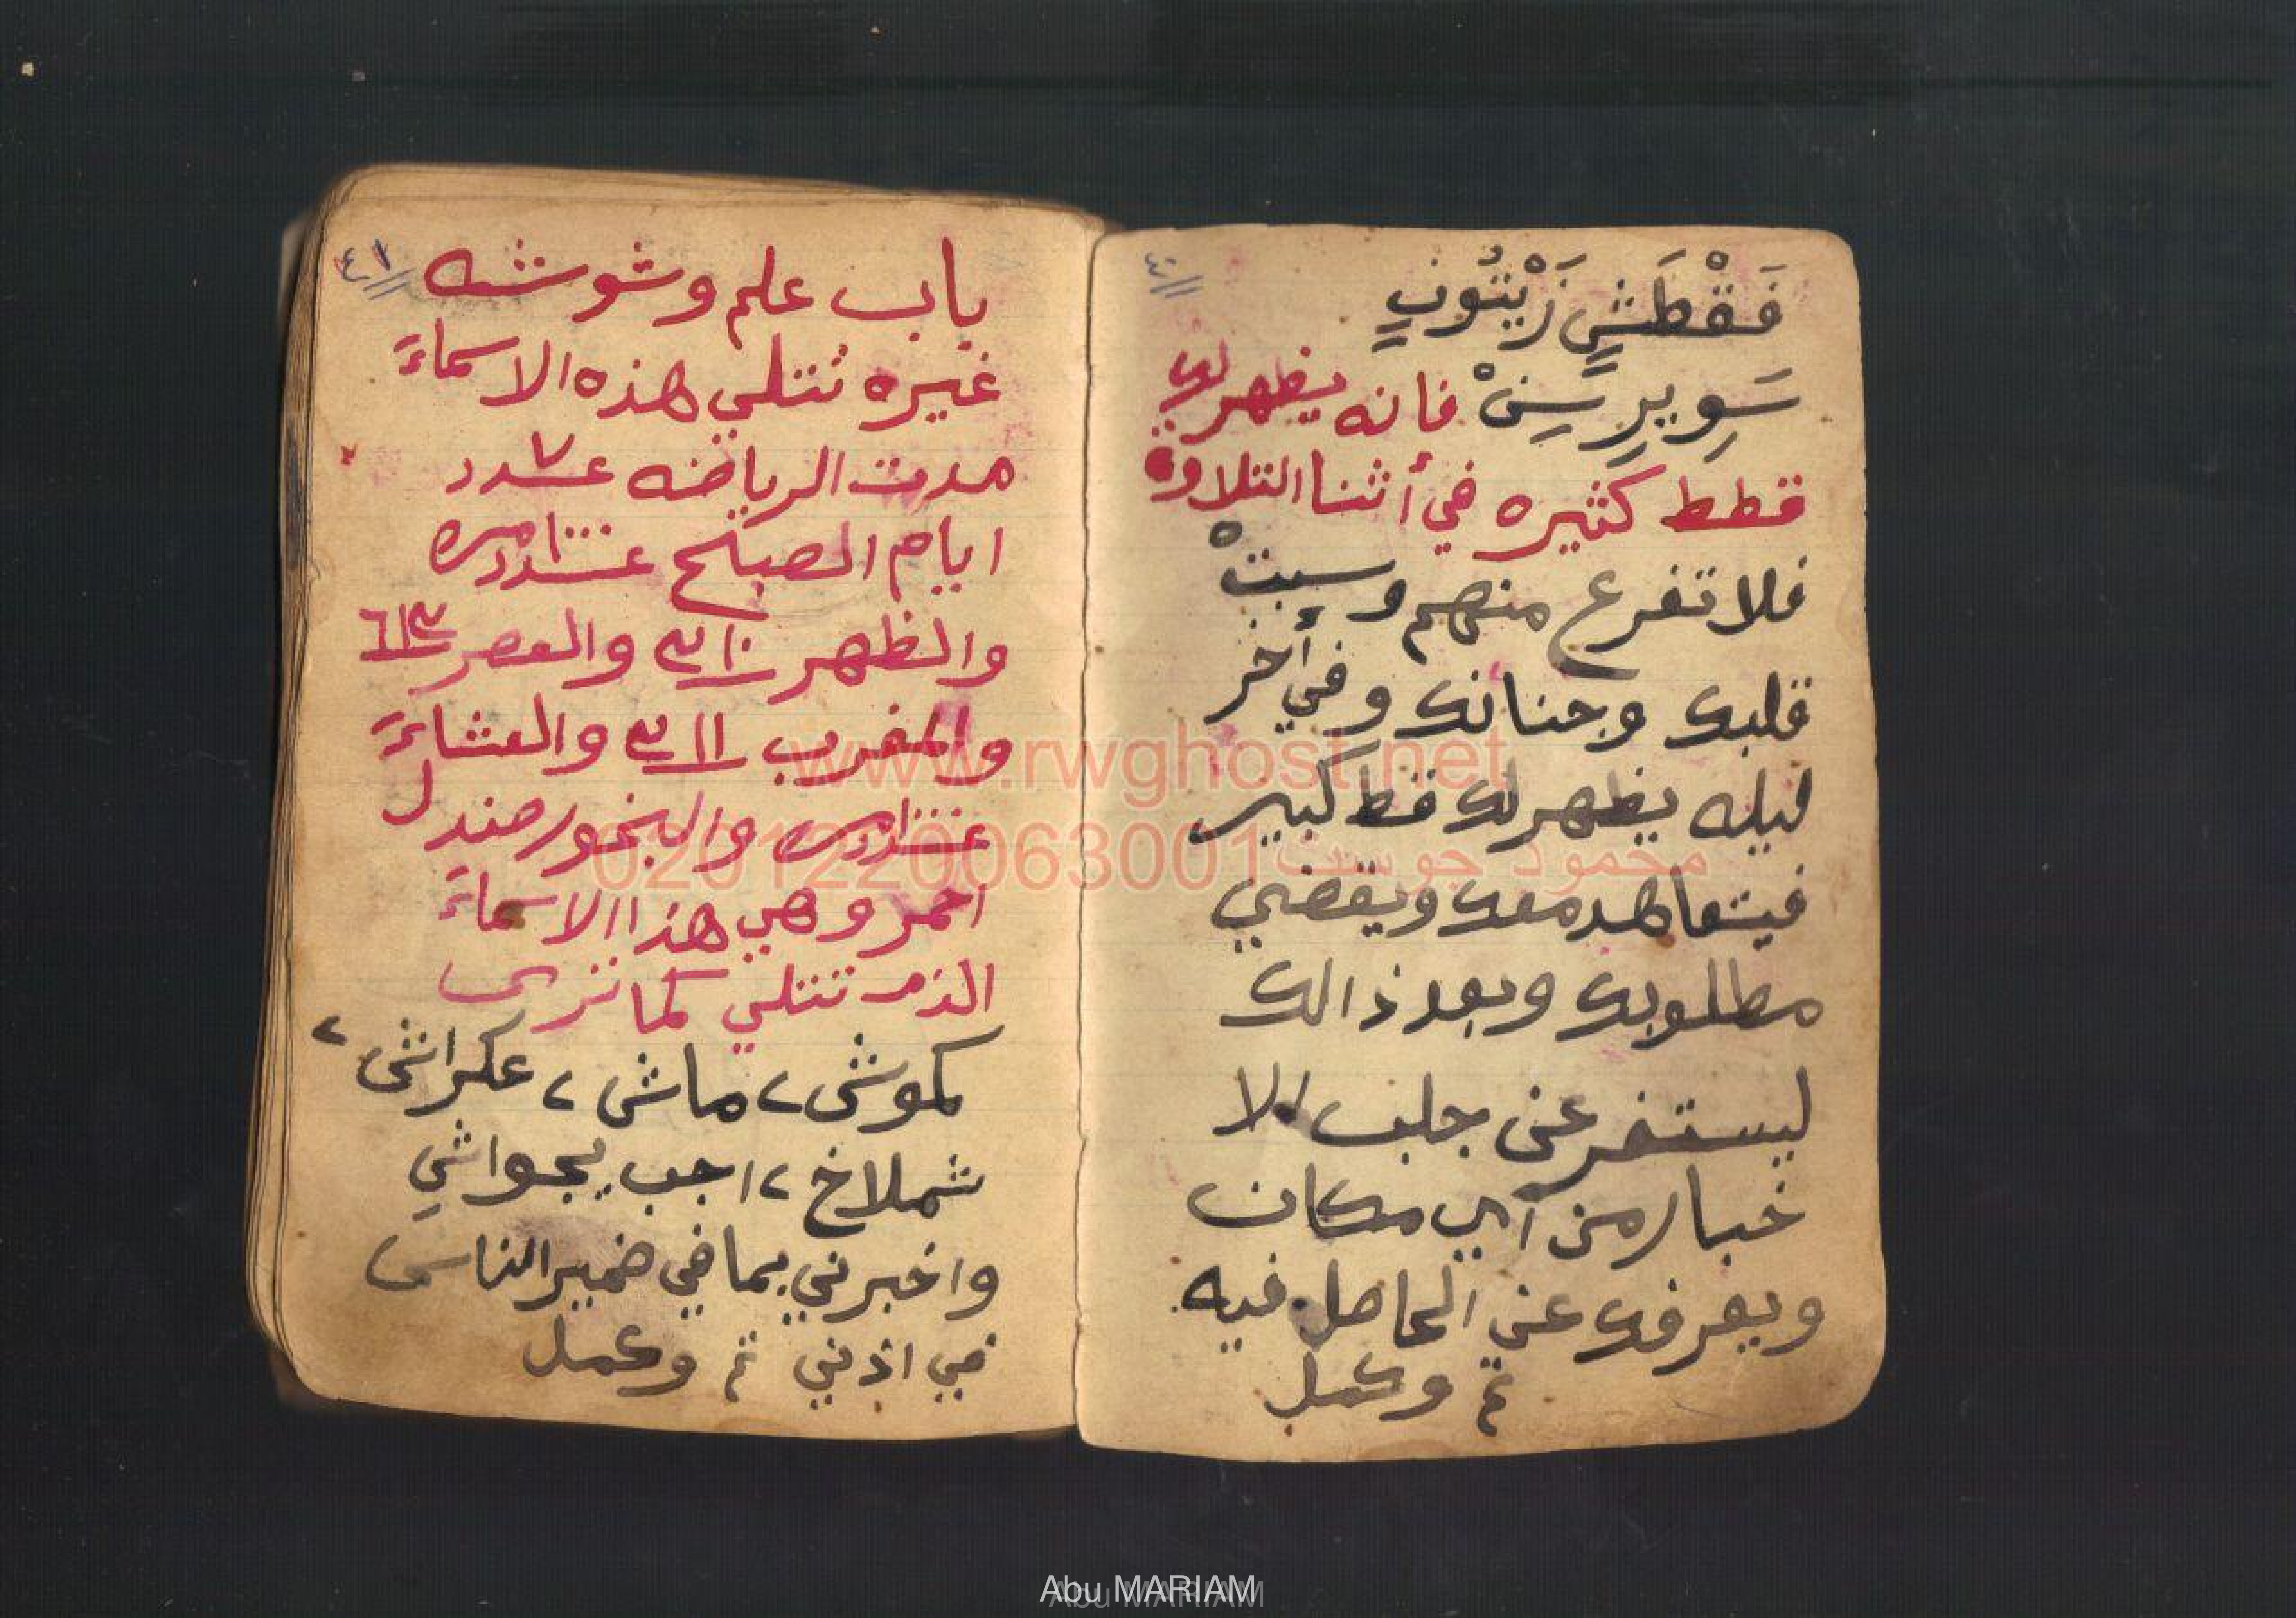 ٤٠
فَقْطَشٍ زَيْتُونٍ
سَوِيرِسِنْ فانه يظهر لك
قطط كثيره في أثنا التلاوه
فلا تفرع منهم وسبتْ
قلبك وجنانك وفي أخر
ليله يظهر لك قط كبير
فيتعاهد معك ويقضي
مطلوبك وبعد ذالك
ليستفر عن جلب الا
خبار من أي مكان
ويعرفك عن الحاصل فيه
تم وكمل
٤١
باب علم وشوشه
غيره تتلي هذه الاسماءَ
مدت الرياضه عدد ٧
ايام الصبح
والظهر والعصر
والمغرب والعشاءَ
والبخور صندل
احمر وهي هذا الاسماءَ
الذى تتلي كما ترى
كموش ٢ ماش ٢ عكراش ٢
شملاخ ٢ اجب يجواشٍ
واخبرني بما في ضمير الناس
في اذني تم وكمل
www.rwghost.net
محمود جوست0201220063001
Abu MARIAM